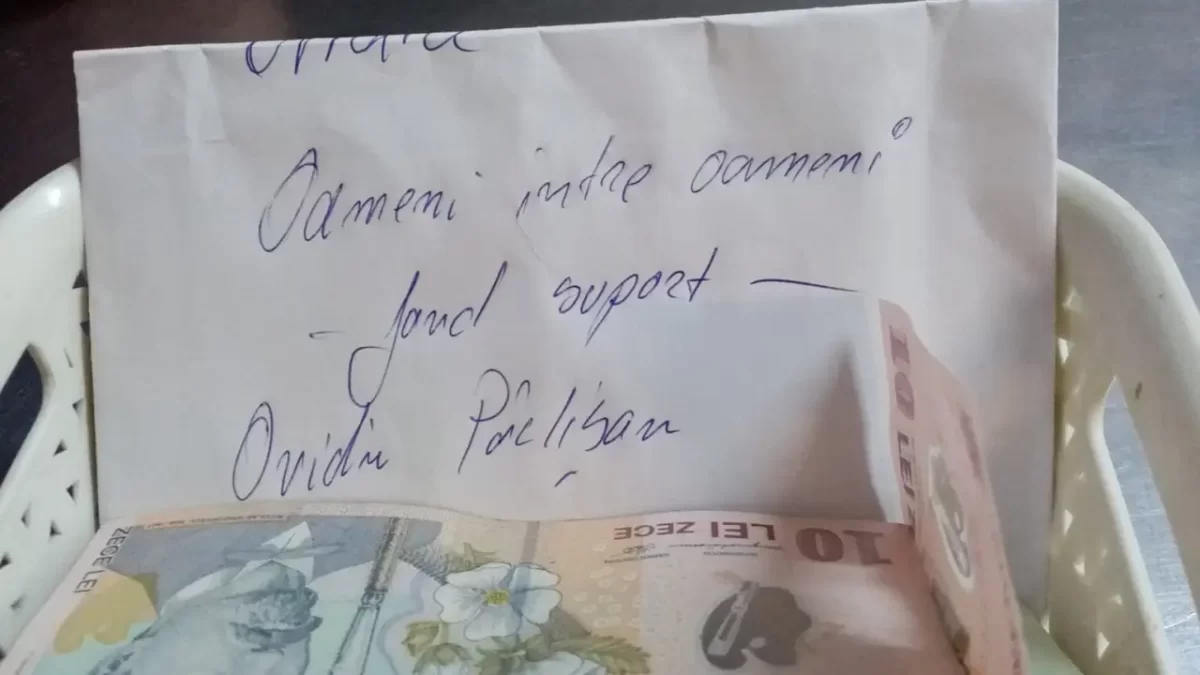 Oameni intre oameni
- fond suport -
Ovidiu Pâclișan
10 LEI
ZECE LEI
10 LEI ZECE